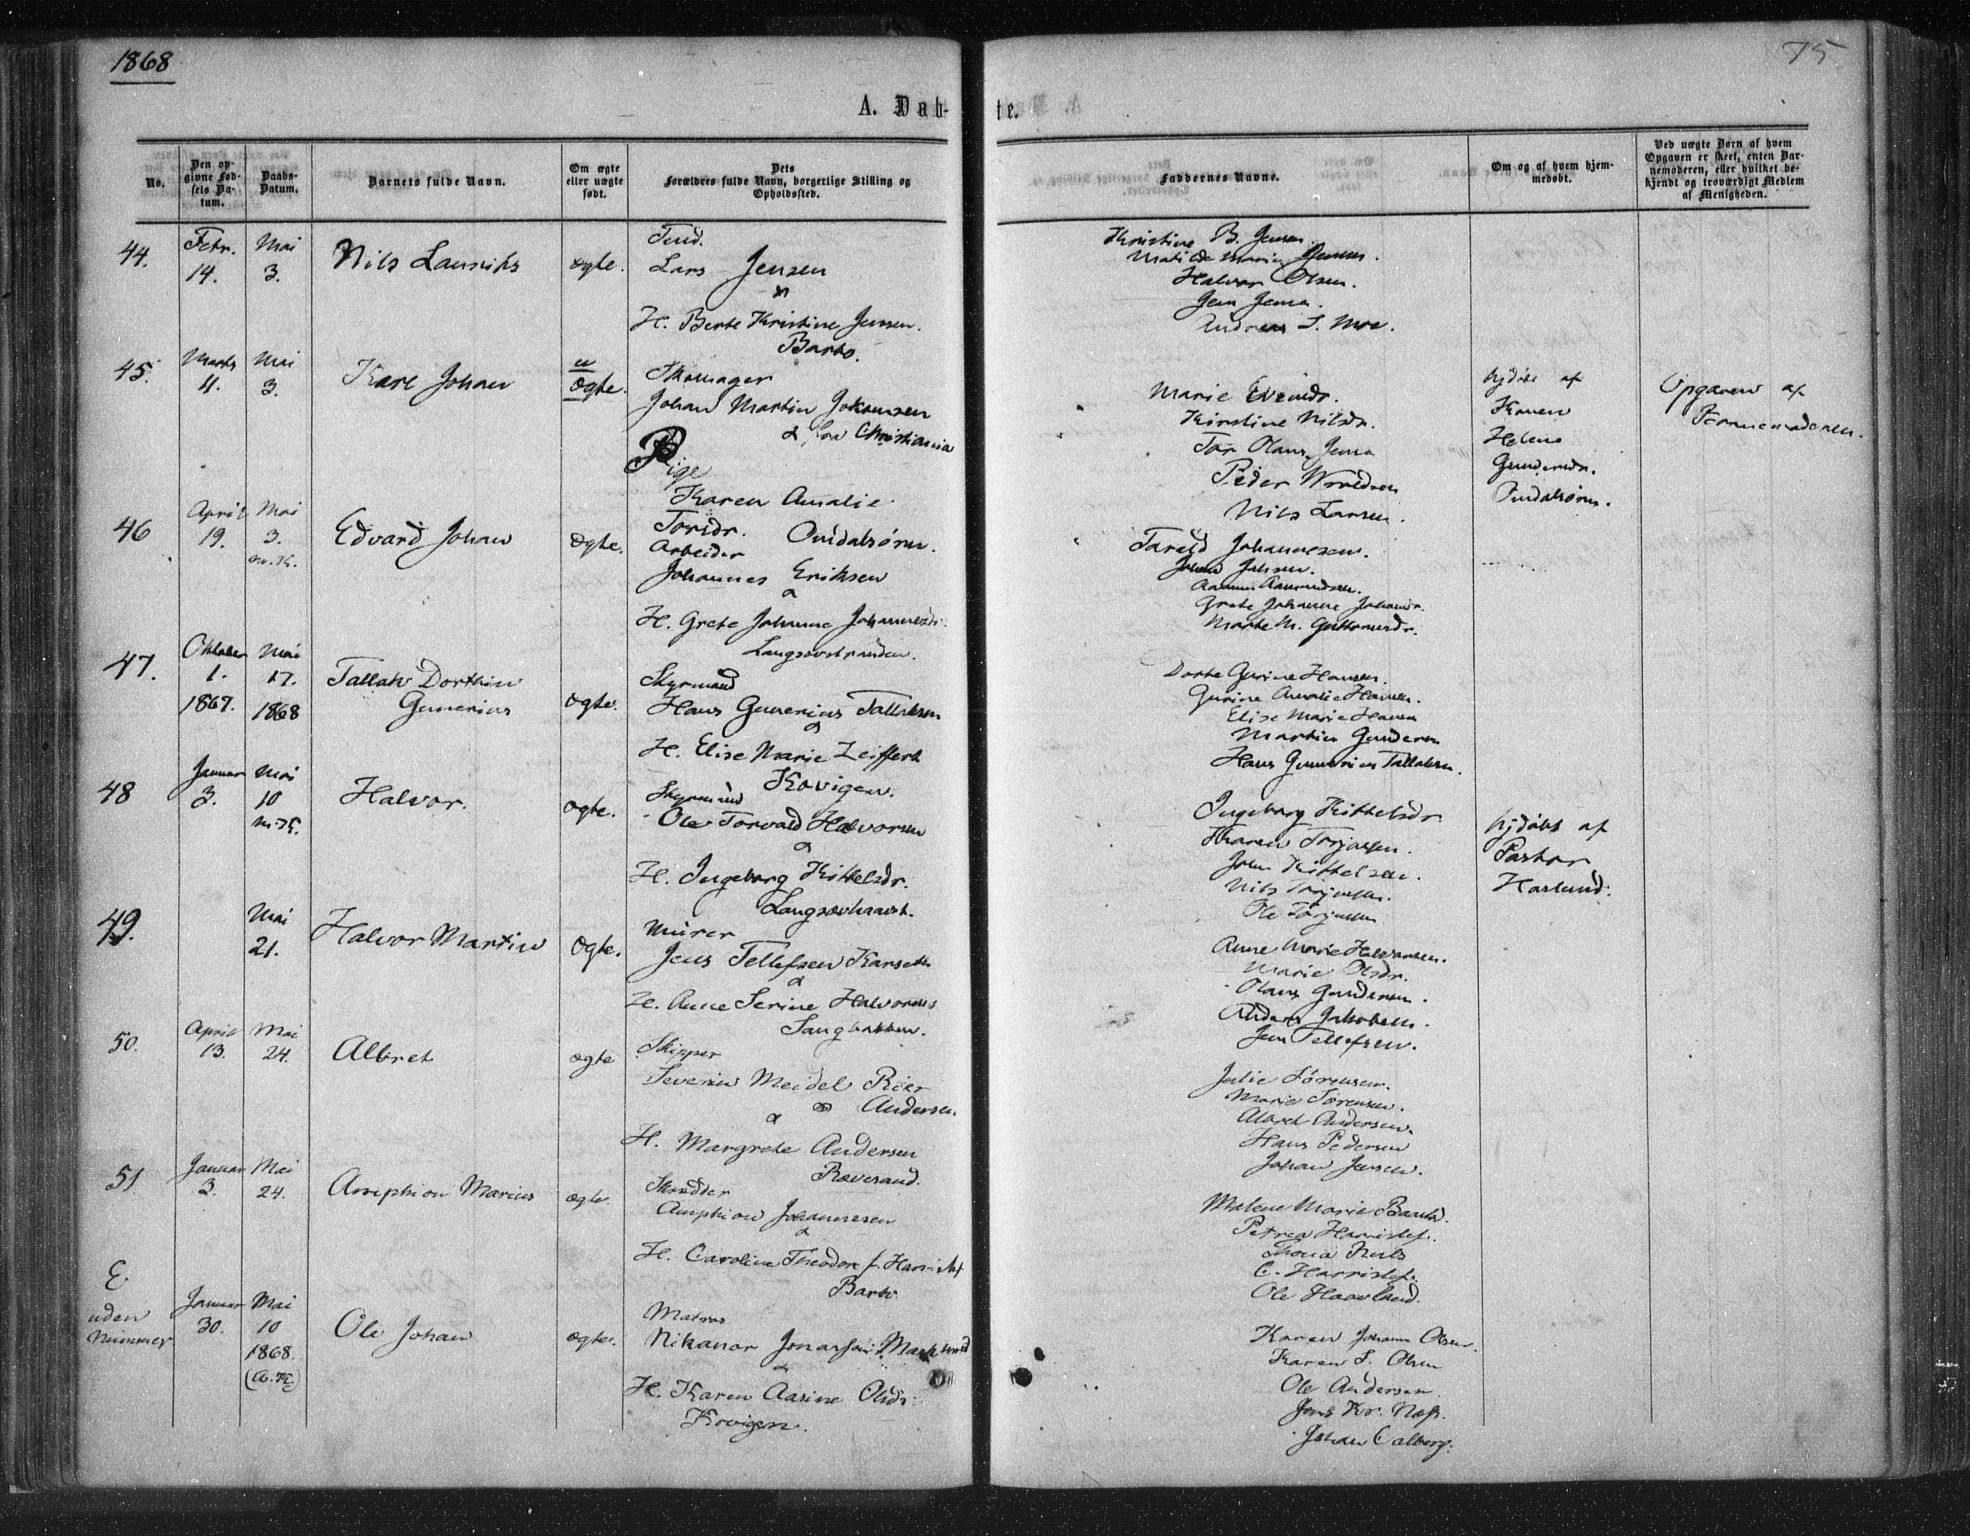 1868
75
A. Døb-
te.
No.
Den op-
givne Fød-
sels Da-
tum.
Daabs-
Datum.
Barnets fulde Navn.
Om ægte
eller uægte
født.
Dets
Forældres fulde Navn, borgerlige Stilling og
Opholdssted.
Faddernes Navne.
Om og af hvem hjem-
medøbt.
Ved uægte Børn af hvem
Opgaven er skeet, enten Bar-
nemoderen, eller hvilket be-
kjendt og troværdigt Medlem
af Menigheden.
44.
Febr.
14.
Mai
3.
Nils Lauriks
ægte.
Lars Jensen
H. Berte Kristine Jensen.
Barbo.
Kristine B. Jensen.
Matilde Maria Jensen.
Halvor Olsen.
Jens Jensen.
Andreas S. Moe.
45.
Marts
11.
Mai
3.
Karl Johan
u
ægte.
Skomager
Johan Martin Johansen
Christiania
Pige
Karen Amalie
Torsdr.
Marie Evensdr.
Kirstine Nilsdr.
Tor Olaus Jensen
Peder
Nils Larsen.
hjdøbt af
Karen
Helene
Gundersdr.
Opgaven af
Barnemoderen.
46
April
19.
Mai
3.
Edvard Johan
ægte.
Arbeider
Johannes Eriksen
&
H. Grete Johanne Johannesdr.
Langsævstranden.
Tarald Johannesen.
Johan Jahsen.
Aanund Aanundsen.
Grete Johanne Johansdr.
Marte M. Guttormsdr.
47.
Oktober
1.
1867.
Mai
17.
1868
Tallak Dorthin
Gunerius
ægte.
Styrmand
Hans Gunerius Tallaksen
&
H. Elise Marie Zeiffert
Kovigen.
Dorte Gurine Hansen.
Gurine Amalie Hansen.
Elise Marie Hansen
Martin Gundersen
Hans Gunerius Tallaksen.
48
Januar
3.
Mai
10
Halvor.
ægte.
Styrmand
Ole Torvald Halvorsen
&
H. Ingeborg Kittelsdr.
Ingeborg Kittelsdr.
Karen Torjussen.
John Kittelsen.
Nils Torjussen.
Ole Torjussen
hjdøbt af
Pastor
Harlund.
49.
Mai
21.
Halvor Martin
ægte.
Murer
Jens Tellefsen
&
H. Anne Serine Halvorsen
Anne Marie Halvorsen.
Marie Olsdr.
Olaus Gundersen.
Anders Jakobsen.
Jens Tellefsen.
50.
April
13.
Mai
24.
Albret
ægte
Skipper
Severin Meidel Riis
Andersen
&
H. Margrete Andersen
Revesand.
Julie Sørensen.
Marie Sørensen.
Albret Andersen.
Hans Pedersen
Johan Jensen.
51
Januar
3.
Mai
24.
Amphion Marius
ægte.
Skrædder
Amphion Johannesen
&
H. Caroline Theodora f. Harristof
Barbo
Malene Marie
Petrea Harristof.
Thora
C. Harristof.
Ole Haavland.
E
uden
Nummer
Januar
30.
Mai
10
1868.
Ole Johan
ægte.
Matros
Nikanor Jonassen
&
H. Karen Aasine Olsdr.
Kovigen.
Karen Johanne Olsen.
Karen S. Olsen
Ole Andersen
Jens Kr. Næss.
Johan Calberg.